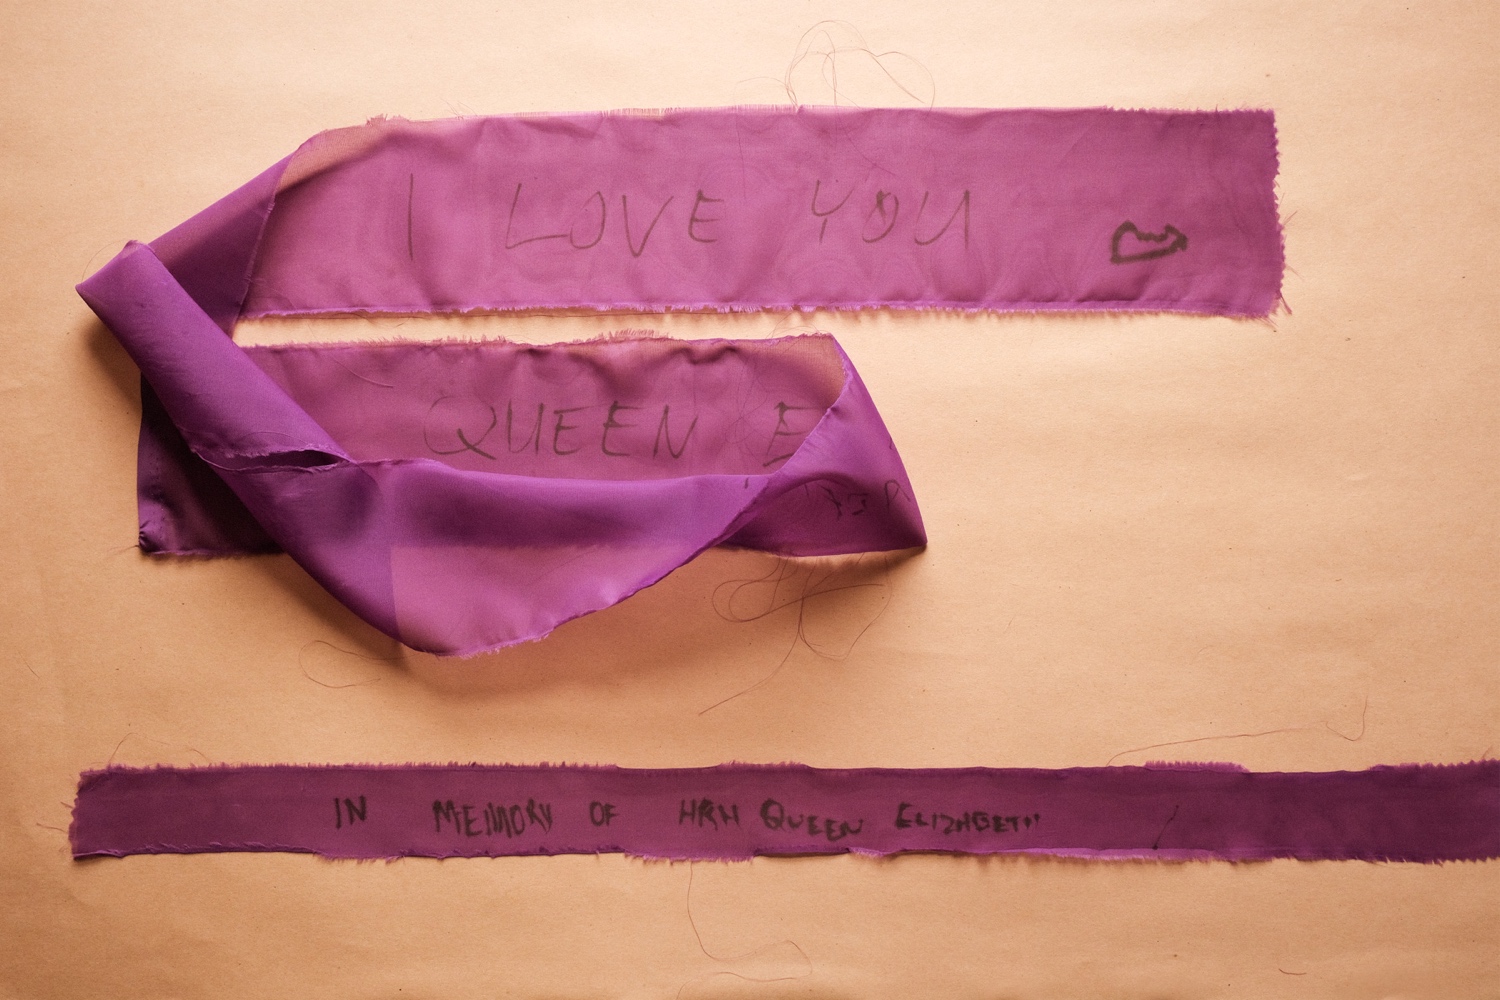 I LOVE YOU
QUEEN E
IN MEMORY OF HRH QUEEN ELIZABETH